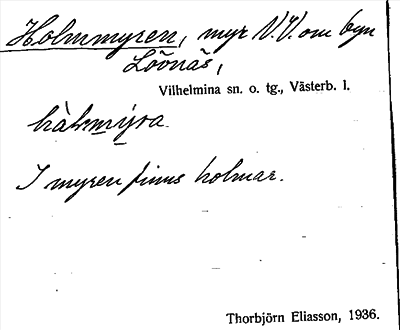 Holmmyren, myr N.V. om byn
Lövnäs,
Vilhelmina sn. o. tg., Västerb. l.
I myren finns holmar.
Thorbjörn Eliasson, 1936.